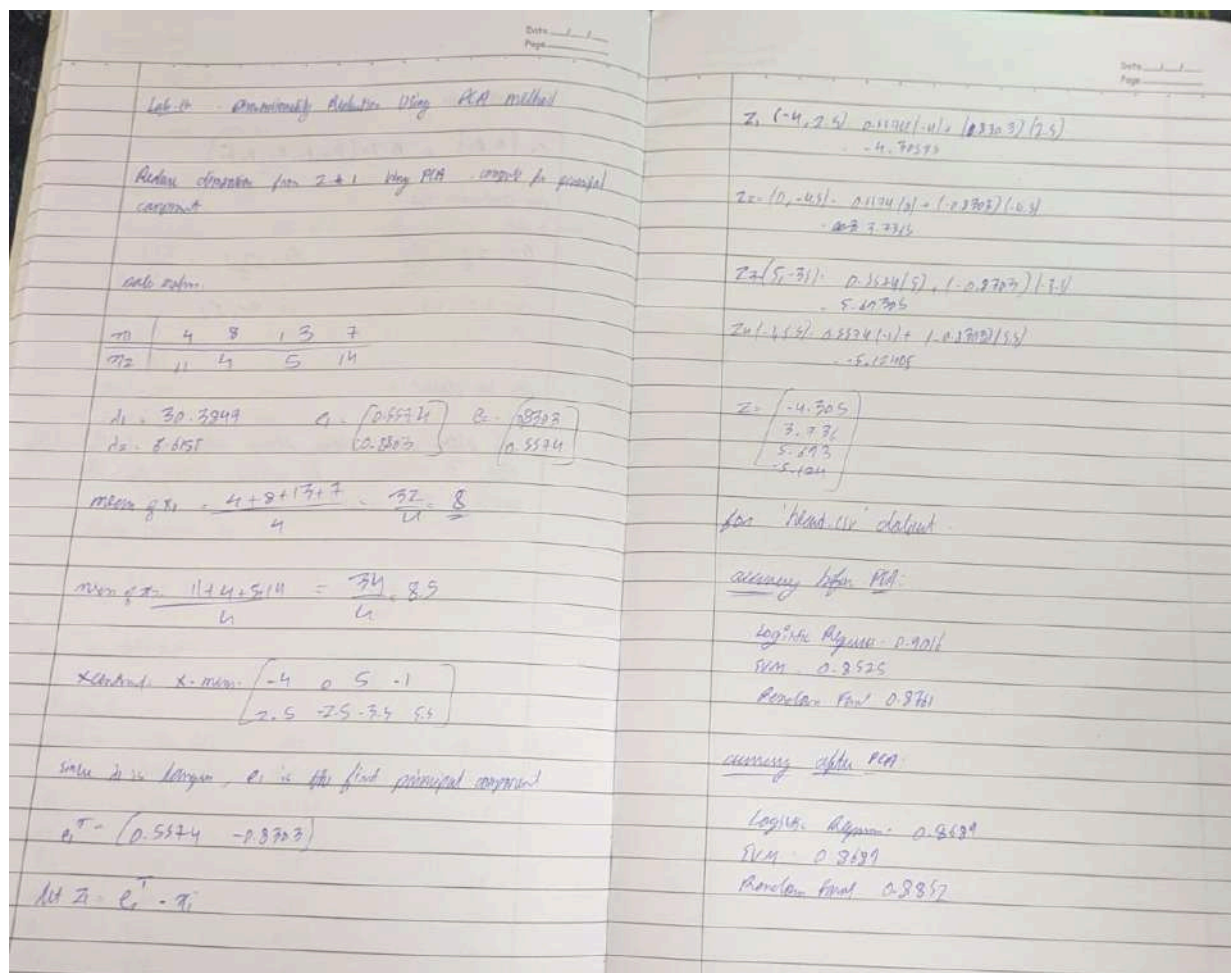 Date
Page
Lab-10 Dimensionality Reduction Using PCA method
Reduce dimension from 2 to 1 Using PCA compute principal
component
x1 4 8 13 7
x2 11 4 5 14
λ1 = 30.3849 e1 = [0.5574 e2 = [0.8303
0.5574]
mean of x1 = 4+8+13+7 / 4 = 32/4 = 8
mean of x2 11+4+5+14 / 4 = 34/4 = 8.5
x - mean = [-4 0 5 -1
2.5 -3.5 5.5]
since λ1 is larger, e1 is the first principal component
e1ᵀ = [0.5574 -0.8303]
let Zi = e1ᵀ - xi
Date
Page
Z1 (-4, 2.5) 0.5574(-4) + (0.8303)(2.5)
Z2 = (0, -4.5) = 0.5574(0) + (-0.8303)(-4.5)
= 3.7363
Z3 (5, -3.5) = 0.5574(5) + (-0.8303)(-3.5)
Z4 (-1, 5.5) 0.5574(-1) + (-0.8303)(5.5)
= -5.12405
Z = [-4.305
3.736
5.693
-5.124]
for 'heart.csv' dataset
accuracy before PCA:
Logistic Regression - 0.9016
SVM 0.8525
Random Forest
accuracy after PCA:
Logistic Regression - 0.8689
SVM 0.8689
Random Forest 0.8852